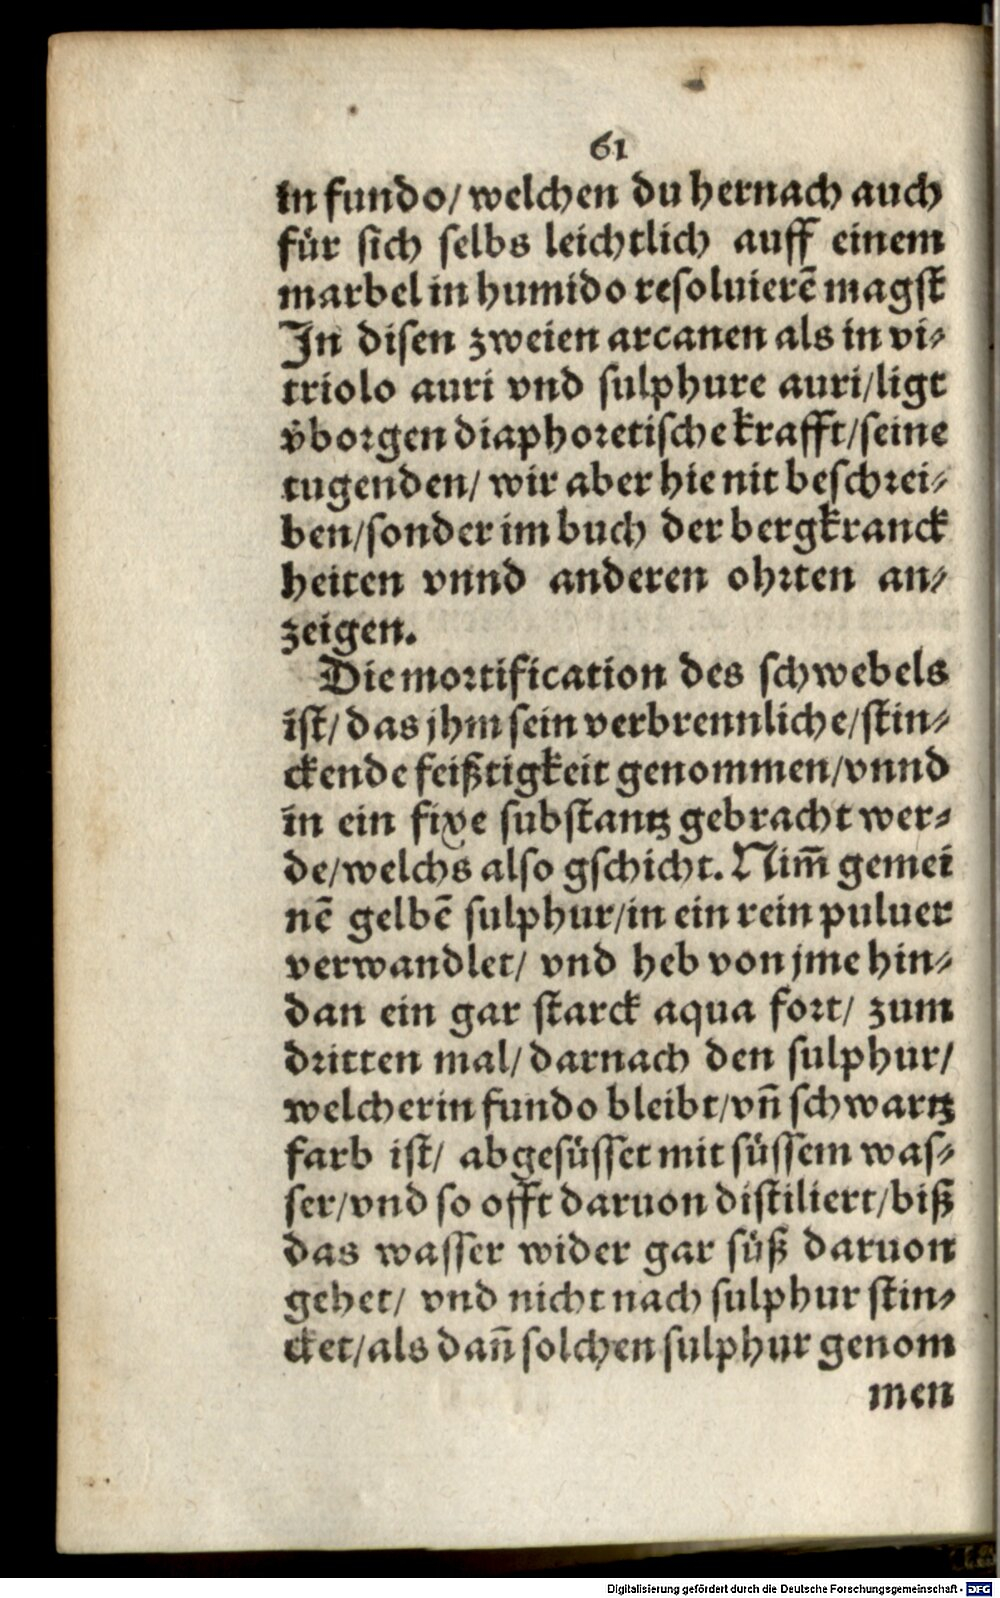 61
in fundo/ welchen du hernach auch
für sich selbs leichtlich auff einem
marbel in humido resoluierē magst
In disen zweien arcanen als in vi⸗
triolo auri vnd sulphure auri/ligt
v̄borgen diaphoretische krafft/seine
tugenden/ wir aber hie nit beschrei⸗
ben/sonder im buch der bergkranck
heiten vnnd anderen ohrten an⸗
zeigen.
Die mortification des schwebels
ist/ das jhm sein verbrennliche/stin⸗
ckende feißtigkeit genommen/vnnd
in ein fixe substantz gebracht wer⸗
de/welchs also gschicht. Nim̄ gemei
nē gelbē sulphur/in ein rein puluer
verwandlet/ vnd heb von jme hin⸗
dan ein gar starck aqua fort/ zum
dritten mal/ darnach den sulphur/
welcher in fundo bleibt/vn̄ schwartz
farb ist/ abgesüsset mit süssem was⸗
ser/vnd so offt daruon distiliert/biß
das wasser wider gar süß daruon
gehet/ vnd nicht nach sulphur stin⸗
cket/als dan̄ solchen sulphur genom
men
Digitalisierung gefördert durch die Deutsche Forschungsgemeinschaft - DFG